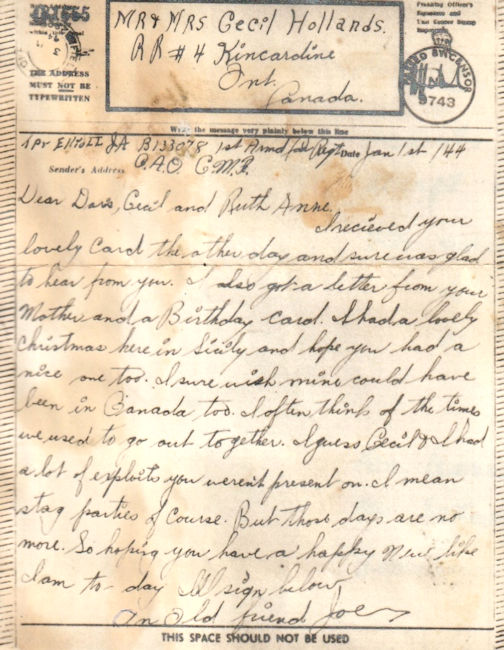 MR & MRS Cecil Hollands.
RR #4 Kincardine
Ont.
Canada.
THE ADDRESS
MUST NOT BE
TYPEWRITTEN
Presiding Officer's
Signature and
9743
Write the message very plainly below this line
Tpr Elliott JA B133078 1st Armd Regt Date Jan 1st /44
Sender's Address C.A.O. C.M.F.
Dear Dors, Cecil and Ruth Anne.
I recieved your
lovely card the other day and sure was glad
to hear from you. I also got a letter from your
Mother and a Birthday card. I had a lovely
Christmas here in Sicily and hope you had a
nice one too. I sure wish mine could have
been in Canada too. I often think of the times
we used to go out together. I guess Cecil & I had
a lot of exploits you werent present on. I mean
stag parties of course. But those days are no
more. So hoping you have a happy New like
I am to day I'll sign below
An Old friend Joe
THIS SPACE SHOULD NOT BE USED